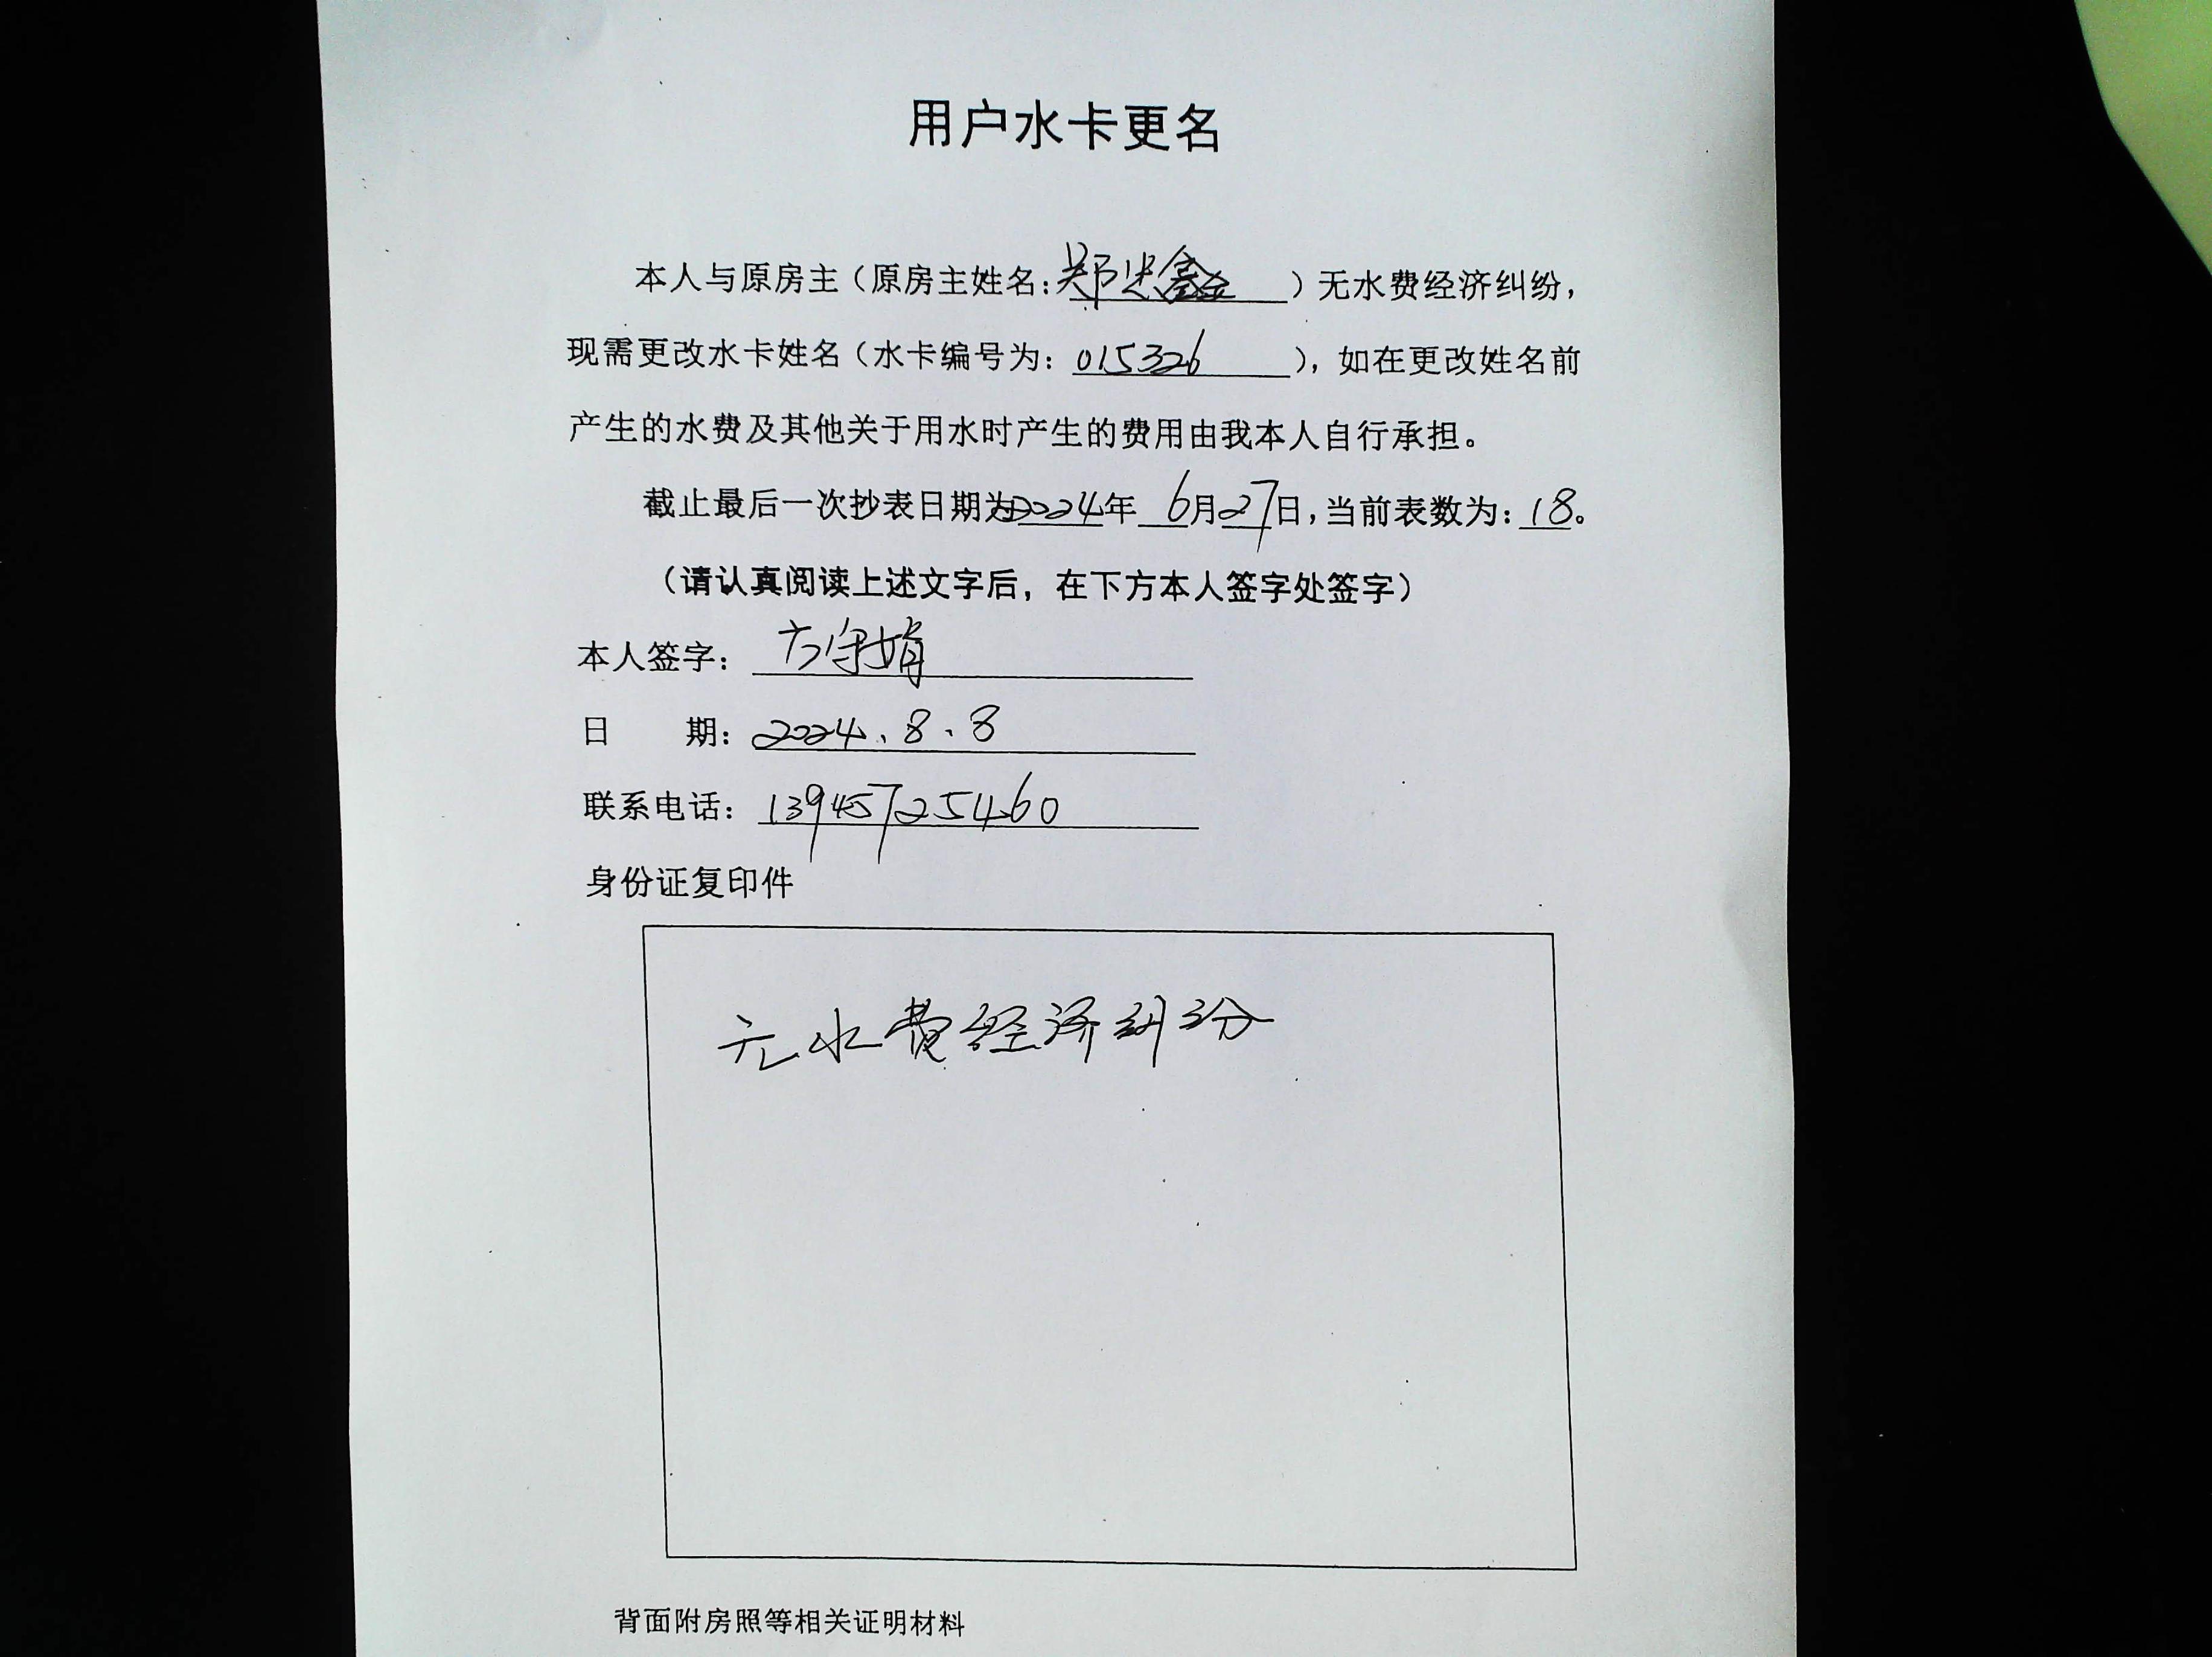 用户水卡更名
本人与原房主（原房主姓名：郑忠鑫）无水费经济纠纷，
现需更改水卡姓名（水卡编号为：015326），如在更改姓名前
产生的水费及其他关于用水时产生的费用由我本人自行承担。
截止最后一次抄表日期为2024年 6月27日，当前表数为：18。
（请认真阅读上述文字后，在下方本人签字处签字）
本人签字：方守娟
日 期：2024.8.8
联系电话：13945725460
身份证复印件
无水费经济纠纷
背面附房照等相关证明材料